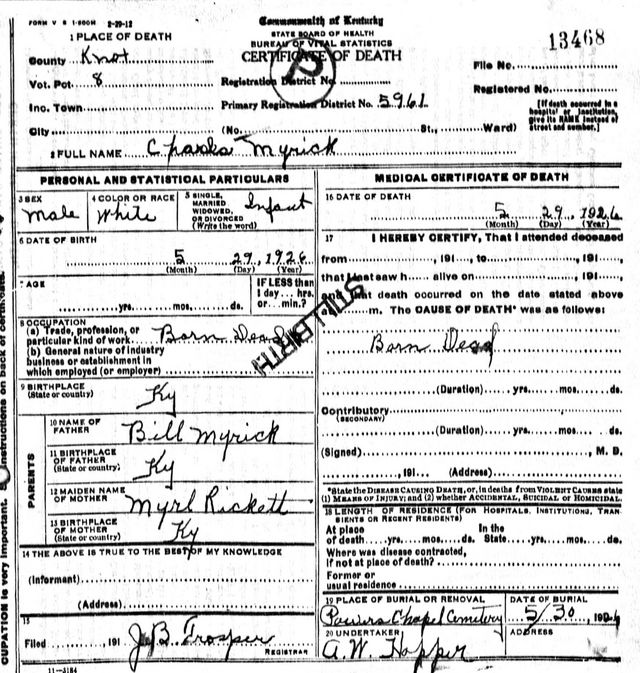 FORM V S 1-500M 2-29-12
Commonwealth of Kentucky
STATE BOARD OF HEALTH
BUREAU OF VITAL STATISTICS
CERTIFICATE OF DEATH
13468
1 PLACE OF DEATH
County Knot
Vot. Pct 8
Inc. Town
City
Registration District No.
Primary Registration District No. 5961
(No. St., Ward)
File No.
Registered No.
[If death occurred in a hospital or institution, give its NAME instead of street and number.]
2 FULL NAME Charls Myrick
PERSONAL AND STATISTICAL PARTICULARS
3 SEX
Male
4 COLOR OR RACE
White
5 SINGLE, MARRIED WIDOWED, OR DIVORCED (Write the word)
Infant
6 DATE OF BIRTH
5 29, 1926
(Month) (Day) (Year)
7 AGE
yrs. mos. ds.
IF LESS than 1 day... hrs. or... min.?
8 OCCUPATION
(a) Trade, profession, or particular kind of work Born Dead
(b) General nature of industry business or establishment in which employed (or employer)
STILL BIRTH
9 BIRTHPLACE
(State or country) Ky
PARENTS
10 NAME OF FATHER Bill Myrick
11 BIRTHPLACE OF FATHER (State or country) Ky
12 MAIDEN NAME OF MOTHER Myrl Rickett
13 BIRTHPLACE OF MOTHER (State or country) Ky
14 THE ABOVE IS TRUE TO THE BEST OF MY KNOWLEDGE
(Informant)
(Address)
15
Filed 191 J.B. Trosper
REGISTRAR
11-3184
MEDICAL CERTIFICATE OF DEATH
16 DATE OF DEATH
5 29, 1926
(Month) (Day) (Year)
17 I HEREBY CERTIFY, That I attended deceased
from , 191 , to , 191 ,
that I last saw h alive on , 191 ,
and that death occurred on the date stated above
m. The CAUSE OF DEATH* was as follows:
Born Dead
(Duration) yrs. mos. ds.
Contributory
(SECONDARY)
(Duration) yrs. mos. ds.
(Signed) , M. D.
, 191 (Address)
*State the DISEASE CAUSING DEATH, or, in deaths from VIOLENT CAUSES state (1) MEANS OF INJURY; and (2) whether ACCIDENTAL, SUICIDAL or HOMICIDAL.
18 LENGTH OF RESIDENCE (FOR HOSPITALS, INSTITUTIONS, TRANSIENTS OR RECENT RESIDENTS)
At place of death yrs. mos. ds. In the State yrs. mos. ds.
Where was disease contracted, if not at place of death?
Former or usual residence
19 PLACE OF BURIAL OR REMOVAL
Powers Chapel Cemetery
DATE OF BURIAL
5/30, 1926
20 UNDERTAKER
A.W. Hopper
ADDRESS
CUPATION is very important. instructions on back of certificate.